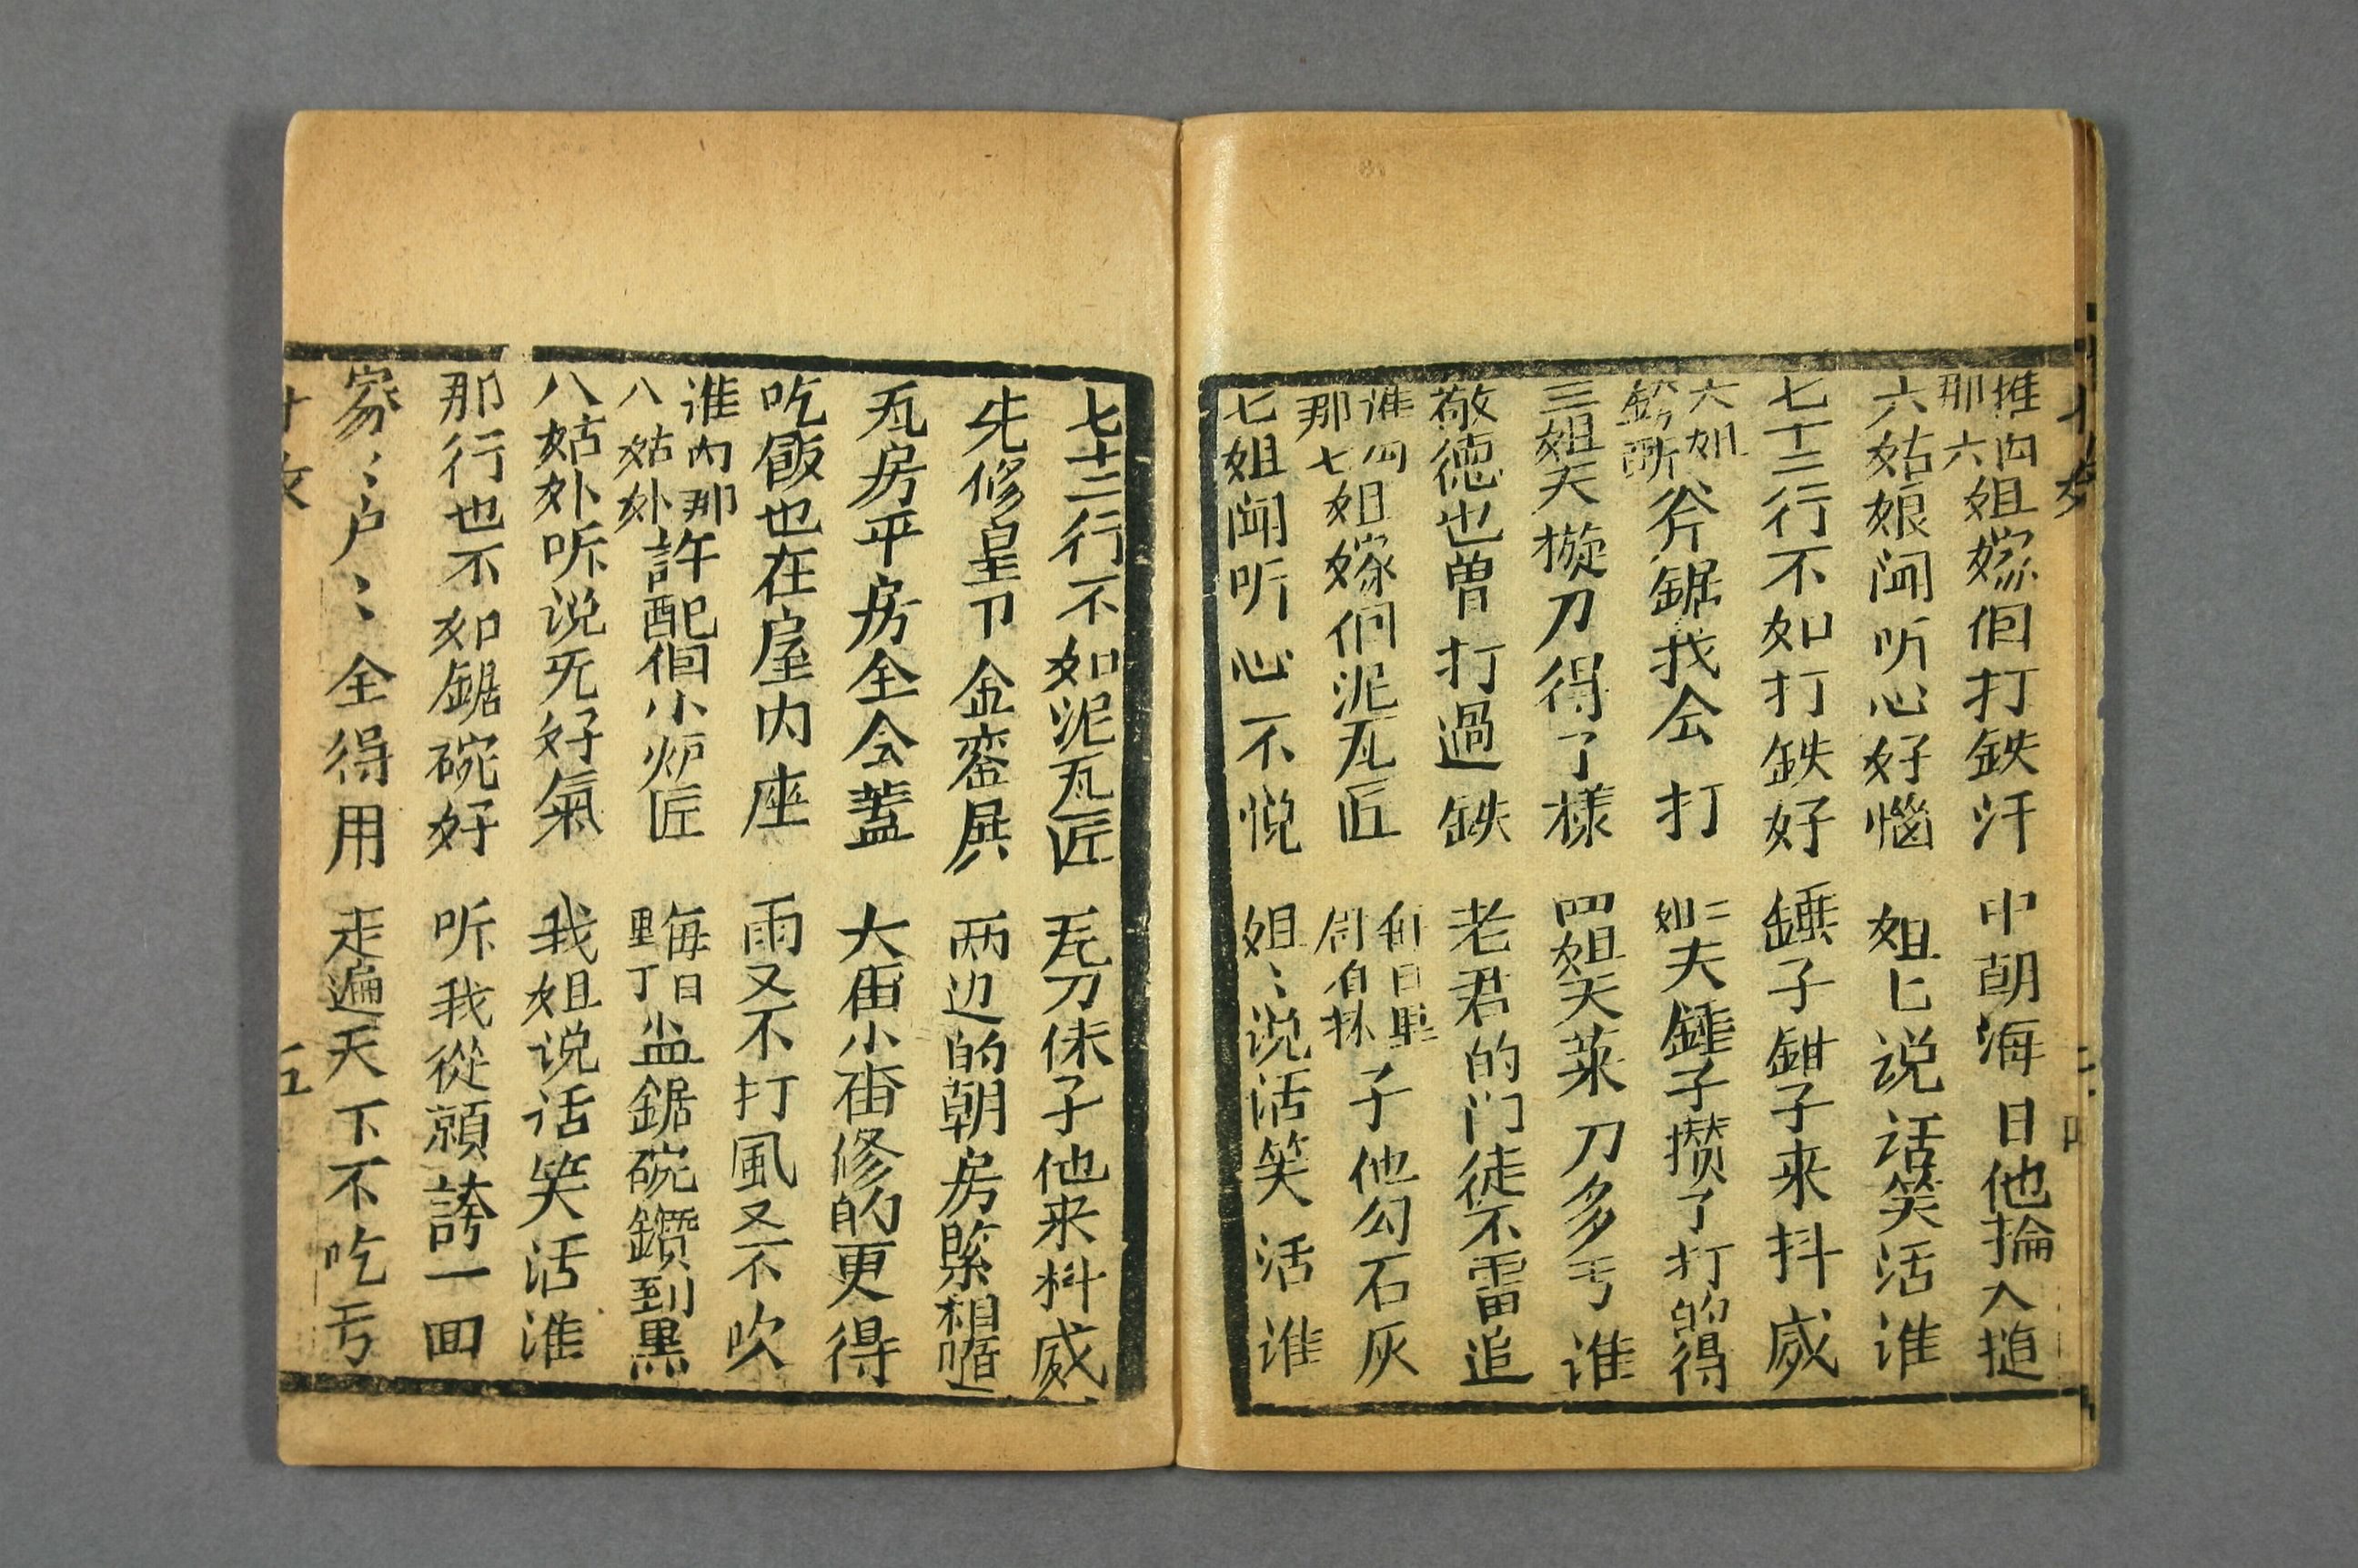 推四那六姐嫁個打鉄汗 中朝海日他掄入搥
六姑娘闻听心好惱 姐匕说话笑活谁
七十二行不如打鉄好 錘子鉗子来抖威
大姐夫斧鋸找会打 二姐夫錘子攒了打的得
三姐夫镟刀得了樣 四姐夫菜刀多亏谁
敬德也曾打過鉄 老君的门徒不雷追
谁四那七姐嫁個泥瓦匠 子他勾石灰
七姐闻听心不悦 姐〻说活笑活谁
七十二行不如泥瓦匠 瓦刀抹子他来抖威
先修皇帀金銮殿 两边的朝房緊相随
瓦房平房全会蓋 大庙小庙修的更得
吃飯也在屋内座 雨又不打風又不吹
谁内那八姑外許配個小炉匠 每日里丁盆鋸碗鑽到黑
八姑外听说死好氣 我姐说话笑活谁
那行也不如鋸碗好 听我從頭誇一回
家〻户〻全得用 走遍天下不吃亏
五